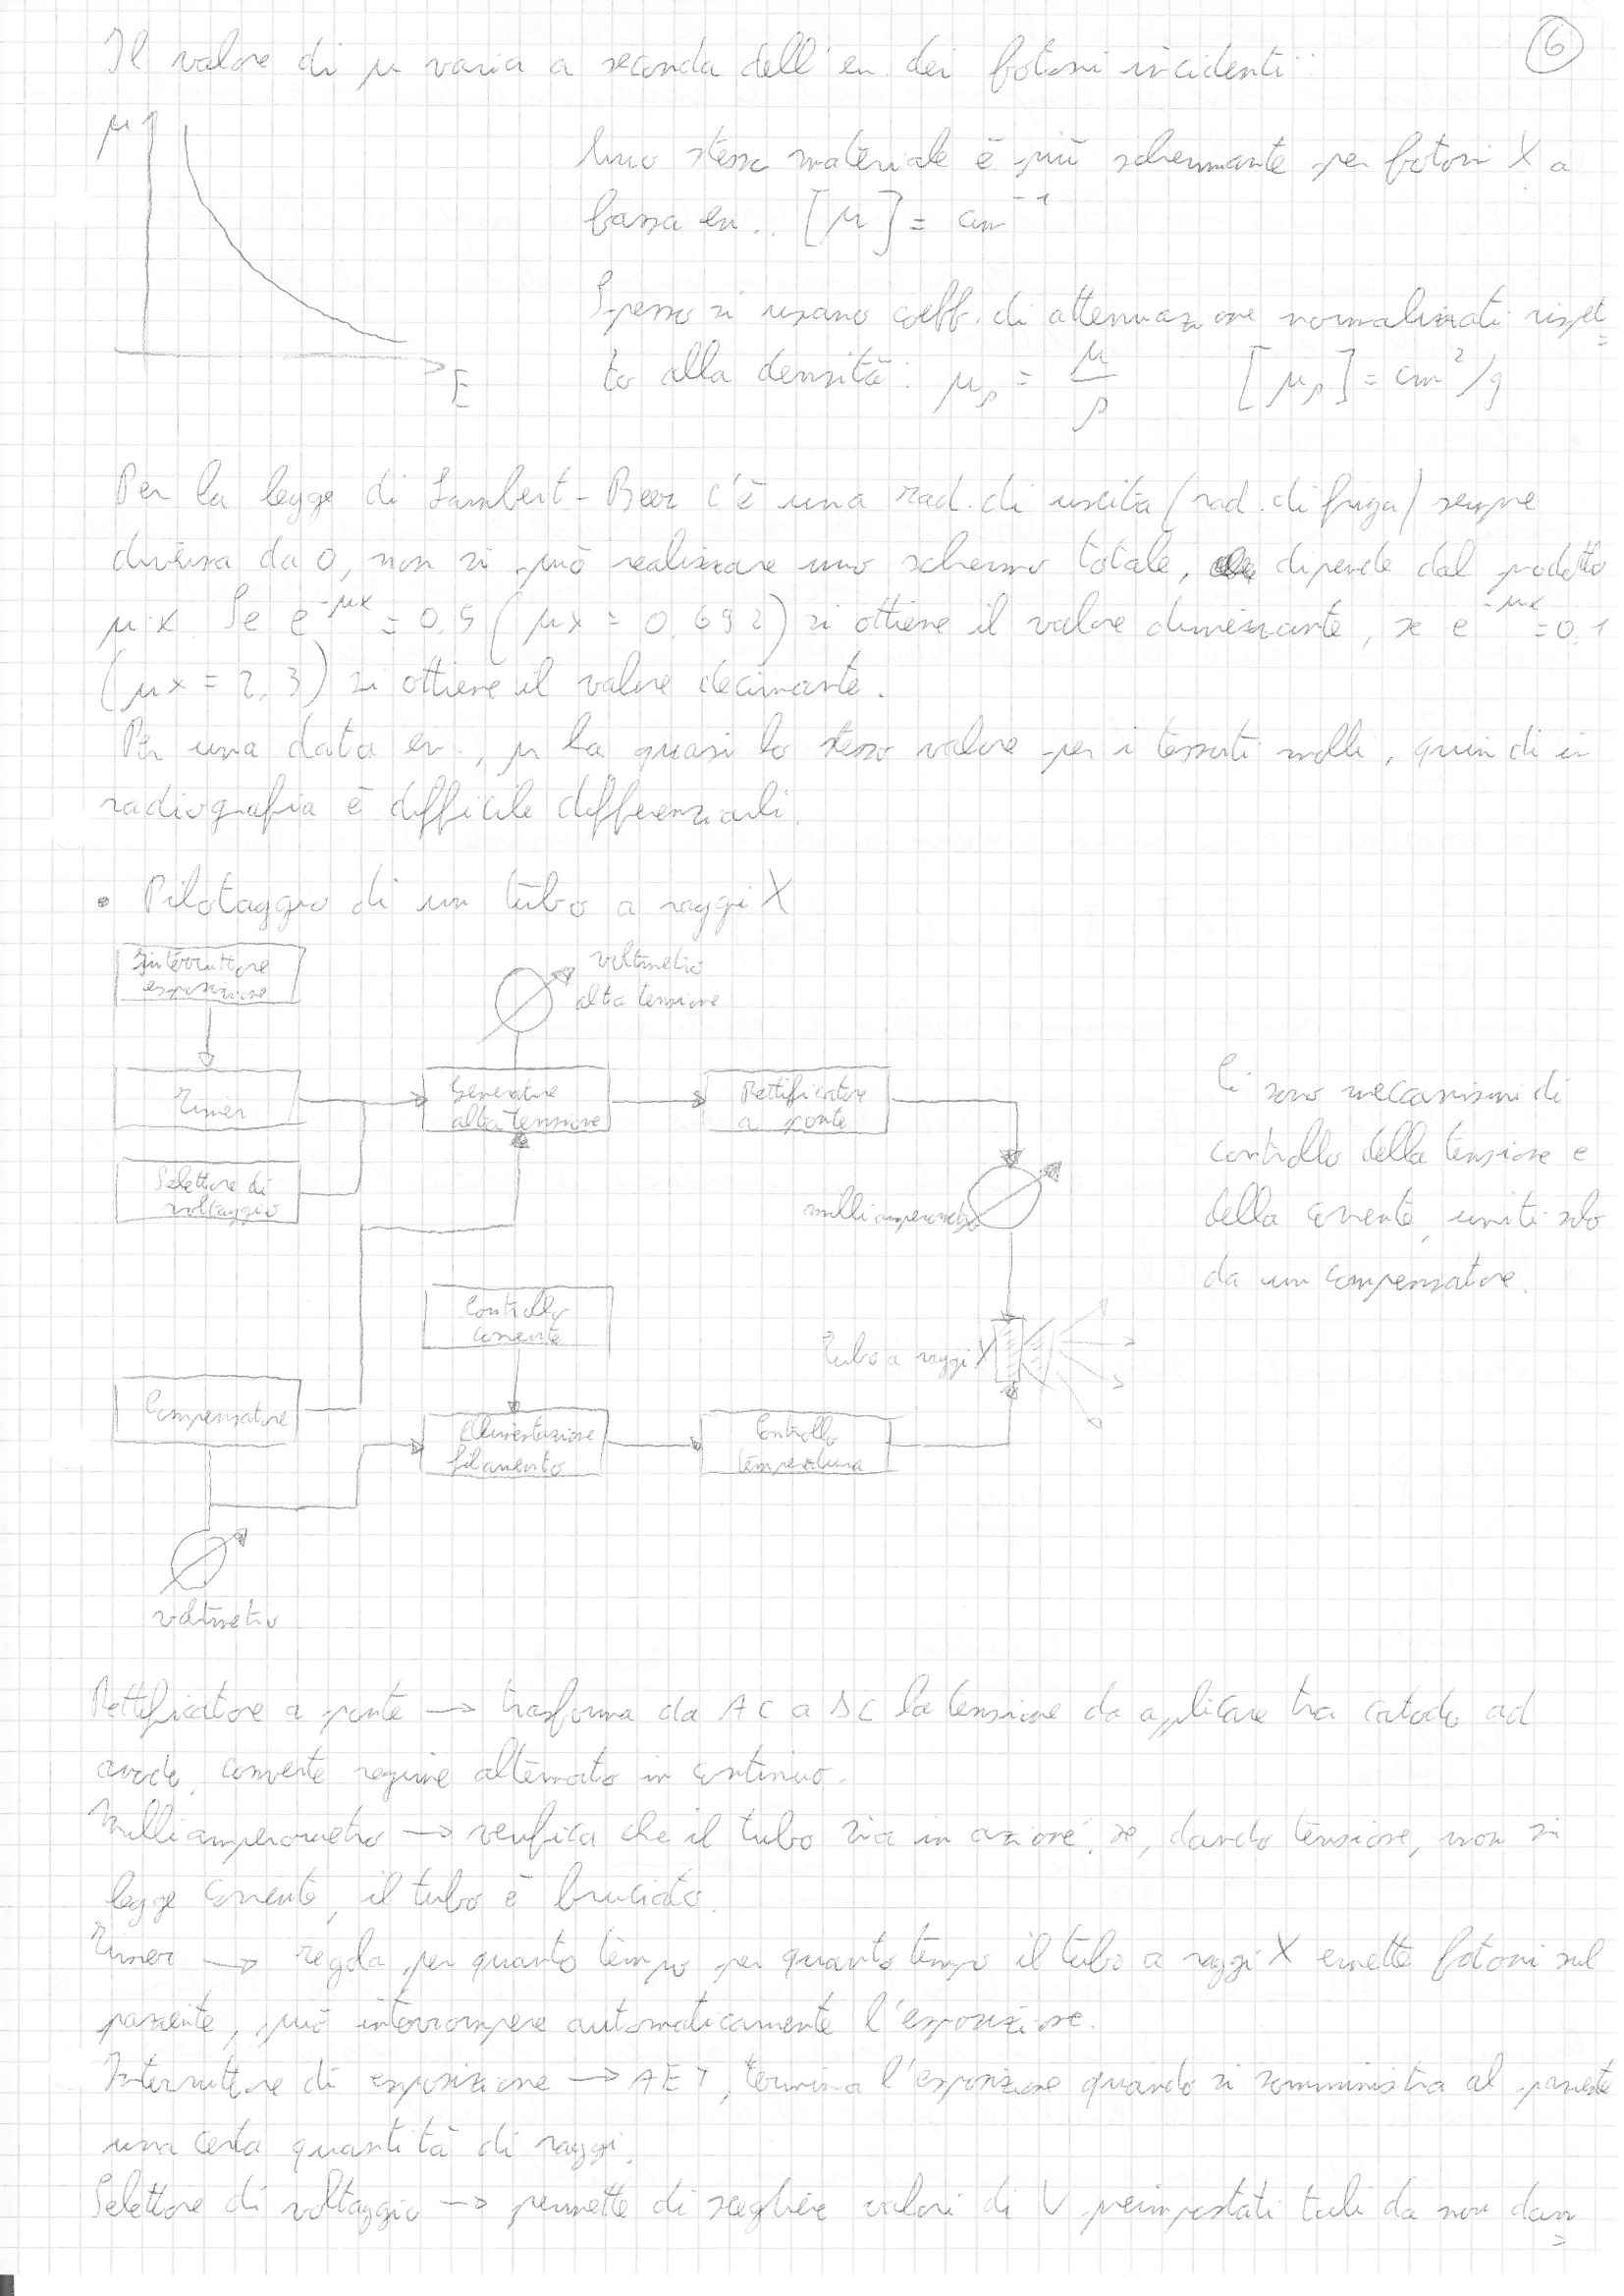 6
Il valore di μ varia a seconda dell'en. dei fotoni incidenti:
μ
Uno stesso materiale è più schermante per fotoni X a
bassa en.. [μ] = cm⁻¹
Spesso si usano coeff. di attenuazione normalizzati rispet=
to alla densità: μρ = μ/ρ [μρ] = cm²/g
E
Per la legge di Lambert-Beer c'è una rad. di uscita (rad. di fuga) sempre
diversa da 0, non si può realizzare uno schermo totale, dipende dal prodotto
μ·x. Se e^-μx = 0,5 (μx = 0,692) si ottiene il valore dimezzante, se e^-μx = 0,1
(μx = 2,3) si ottiene il valore decimante.
Per una data en., μ ha quasi lo stesso valore per i tessuti molli, quindi in
radiografia è difficile differenziarli.
• Pilotaggio di un tubo a raggi X
Interruttore
esposizione
voltmetro
alta tensione
Timer
Generatore
alta tensione
Rettificatore
a ponte
Selettore di
voltaggio
milliamperometro
Ci sono meccanismi di
controllo della tensione e
della corrente, uniti solo
da un compensatore.
Controllo
corrente
Tubo a raggi X
Compensatore
Alimentazione
filamento
Controllo
temperatura
voltmetro
Rettificatore a ponte → trasforma da AC a DC la tensione da applicare tra catodo ad
anodo, converte regime alternato in continuo.
Milliamperometro → verifica che il tubo sia in azione, se, dando tensione, non si
legge corrente, il tubo è bruciato.
Timer → regola per quanto tempo per quanto tempo il tubo a raggi X emette fotoni sul
paziente, può interrompere automaticamente l'esposizione.
Interruttore di esposizione → AET, termina l'esposizione quando si somministra al paziente
una certa quantità di raggi.
Selettore di voltaggio → permette di scegliere valori di V preimpostati tali da non dan=